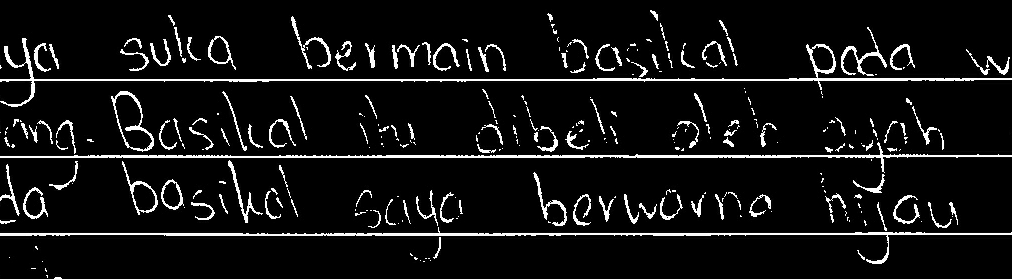 ya suka bermain basikal pada w
ang. Basikal itu dibeli oleh ayah
da basikal saya berwarna hijau